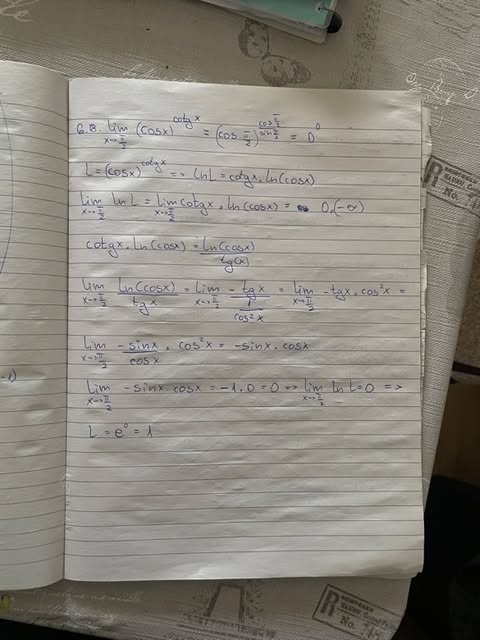 6.8. lim x→π/2 (cosx)^cotgx = (cos π/2)^(cos π/2 / sin π/2) = 0^0
L = (cosx)^cotgx => lnL = cotgx · ln(cosx)
lim x→π/2 lnL = lim x→π/2 cotgx · ln(cosx) = 0·(-∞)
cotgx · ln(cosx) = ln(cosx) / tg(x)
lim x→π/2 ln(cosx) / tgx = lim x→π/2 -tgx / (1 / cos²x) = lim x→π/2 -tgx · cos²x =
lim x→π/2 -sinx / cosx · cos²x = -sinx · cosx
-1)
lim x→π/2 -sinx cosx = -1·0 = 0 => lim x→π/2 lnL = 0 =>
L = e^0 = 1
R
No.
R
REGISTERED
No.